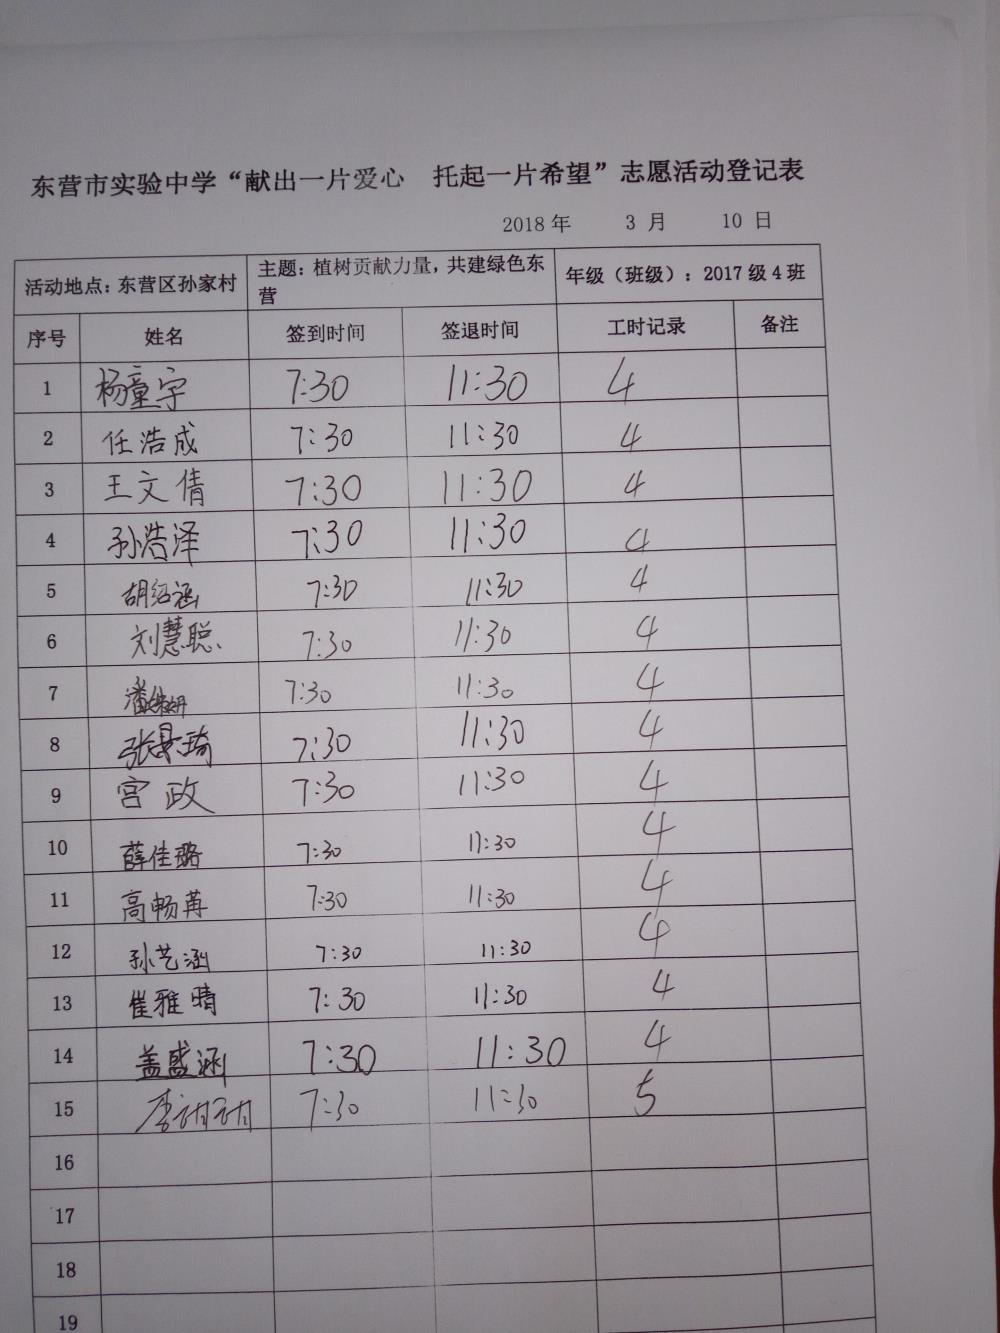 东营市实验中学“献出一片爱心 托起一片希望”志愿活动登记表
2018 年 3 月 10 日
活动地点：东营区孙家村 主题：植树贡献力量，共建绿色东营 年级（班级）：2017 级 4 班
序号 姓名 签到时间 签退时间 工时记录 备注
1 杨童宇 7:30 11:30 4
2 任浩成 7:30 11:30 4
3 王文倩 7:30 11:30 4
4 孙浩泽 7:30 11:30 4
5 胡绍涵 7:30 11:30 4
6 刘慧聪 7:30 11:30 4
7 7:30 11:30 4
8 张景琦 7:30 11:30 4
9 宫政 7:30 11:30 4
10 薛佳璐 7:30 11:30 4
11 高畅苒 7:30 11:30 4
12 孙艺涵 7:30 11:30 4
13 崔雅晴 7:30 11:30 4
14 盖盛涵 7:30 11:30 4
15 李 7:30 11:30 5
16
17
18
19